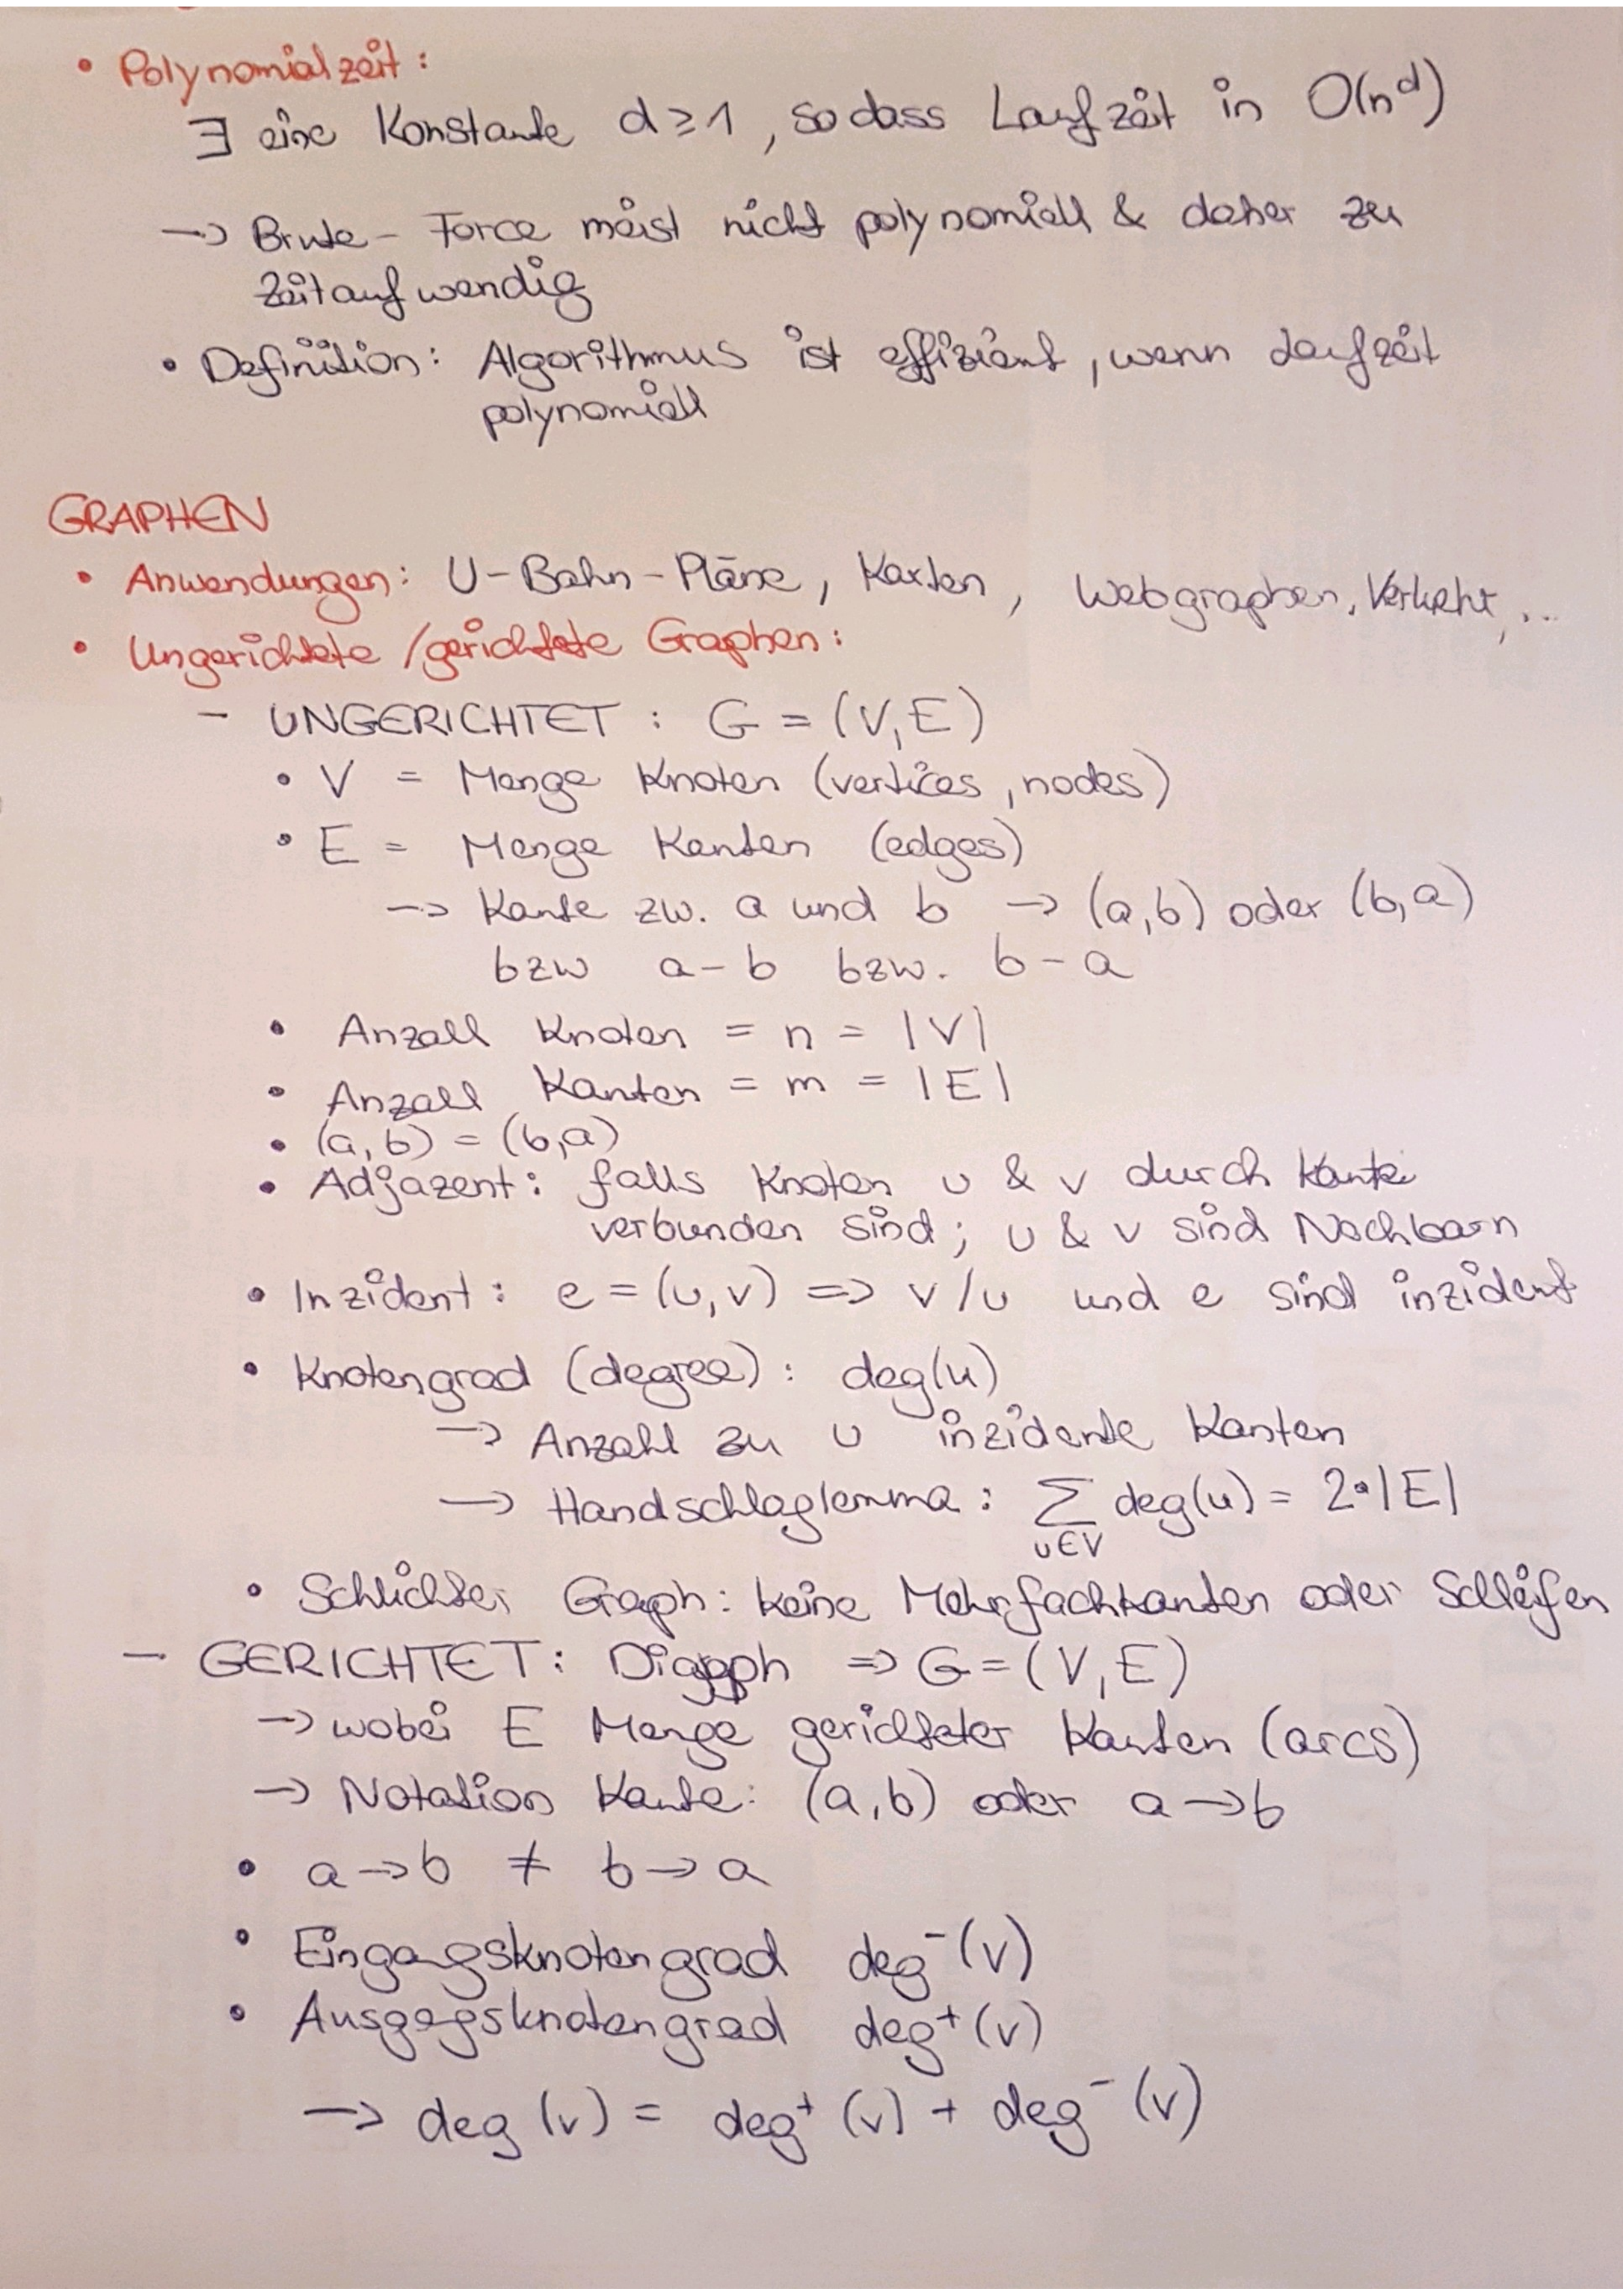 • Polynomialzeit:
∃ eine Konstante d ≥ 1, sodass Laufzeit in O(n^d)
→ Brute-Force meist nicht polynomiell & daher zu
zeitaufwendig
• Definition: Algorithmus ist effizient, wenn Laufzeit
polynomiell
GRAPHEN
• Anwendungen: U-Bahn-Pläne, Karten, Webgraphen, Verkehr, ...
• Ungerichtete/gerichtete Graphen:
- UNGERICHTET: G = (V, E)
• V = Menge Knoten (vertices, nodes)
• E = Menge Kanten (edges)
→ Kante zw. a und b → (a,b) oder (b,a)
bzw a-b bzw. b-a
• Anzall Knoten = n = |V|
• Anzall Kanten = m = |E|
• (a,b) = (b,a)
• Adjazent: falls Knoten u & v durch Kante
verbunden sind; u & v sind Nachbarn
• Inzident: e = (u,v) => v/u und e sind inzident
• Knotengrad (degree): deg(u)
→ Anzahl zu u inzidente Kanten
→ Handschlaglemma: ∑ deg(u) = 2•|E|
u∈V
• Schlichter Graph: keine Mehrfachkanten oder Schleifen
- GERICHTET: Digraph => G = (V, E)
→ wobei E Menge gerichteter Kanten (arcs)
→ Notation Kante: (a,b) oder a→b
• a→b ≠ b→a
• Eingangsknotengrad deg⁻(v)
• Ausgangsknotengrad deg⁺(v)
→ deg(v) = deg⁺(v) + deg⁻(v)